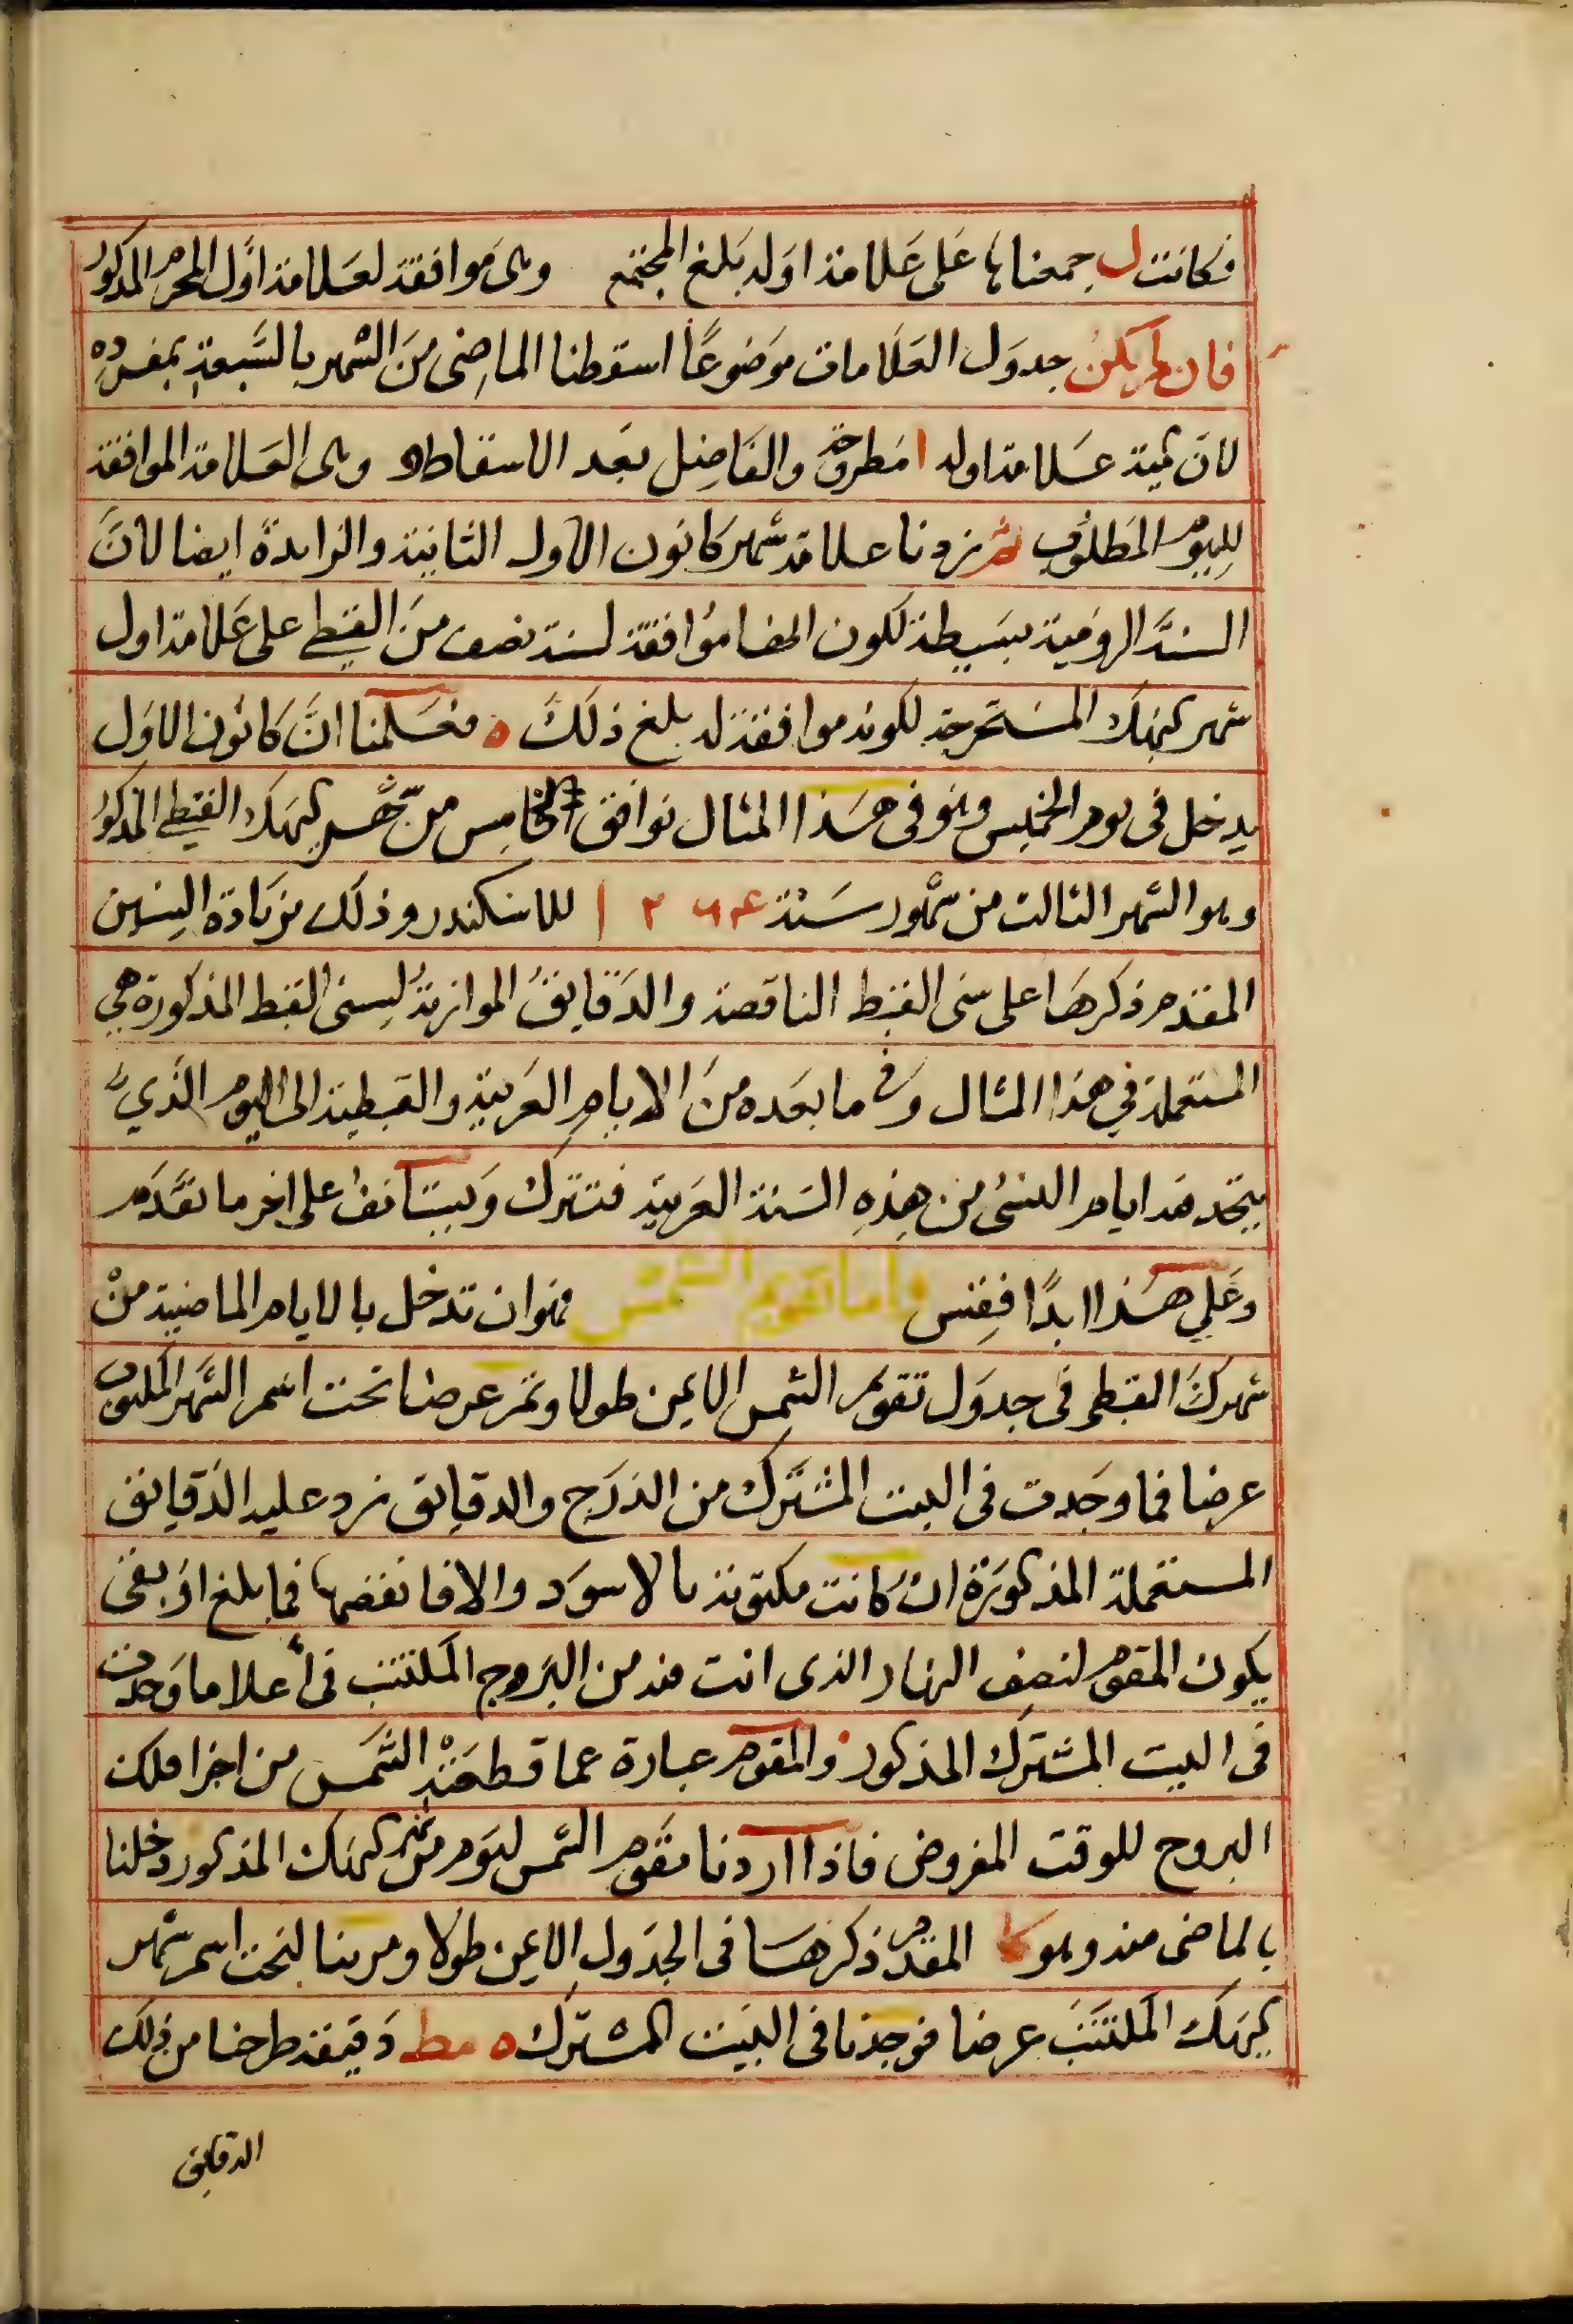 فكانت ل جمعناها على علامة اوله بلغ المجتمع وهى موافقة لعلامة اول المحرم المذكور
فان لم يكن جدول العلامات موضوعًا اسقطنا الماضى من الشهر بالسبعة بمفرده
لان ثمة علامة اوله ا مطروحة والفاضل بعد الاسقاط وهى العلامة الموافقة
لليوم المطلوب ثم زدنا علامة شهر كانون الاول الثانية والزايدة ايضا لان
السنة الرومية بسيطة لكون ايضا موافقة لسنة نصف من القبطي على علامة اول
شهر كيهك المستخرجة لكونه موافقة له بلغ ذلك ه فعلمنا ان كانون الاول
يدخل فى يوم الخميس وهو فى هذا المثال توافق الخامس من شهر كيهك القبطي المذكور
وهو الشهر الثالث من شهور سنة للاسكندر وذلك بزيادة السنين
المقدم ذكرها على سنى القبط الناقصة والدقايق الموازية لسنى القبط المذكورة هي
المستعملة في هذا المثال وفى ما بعده من الايام العربية والقبطية الى اليوم الذي
يتخذ فيه ايام النسئ من هذه السنة العربية فتترك ويستانف على اخر ما تقدم
وعلي هذا ابدًا فقس واما تقويم الشمس فهو ان تدخل بالايام الماضية من
شهرك القبطى فى جدول تقويم الشمس الايمن طولا وتمر عرضا تحت اسم الشهر المكتوب
عرضا فما وجدت فى البيت المشترك من الدرج والدقايق زد عليه الدقايق
المستعملة المذكورة ان كانت مكتوبة بالاسود والا فانقصها فما بلغ او بقى
يكون المقوم لنصف النهار الذى انت فيه من البروج المكتتب فى أعلا ما وجدت
فى البيت المشترك المذكور والمقوم عبارة عما قطعته الشمس من اجزا فلك
البروج للوقت المفروض فاذا اردنا مقوم الشمس ليوم من شهر كيهك المذكور دخلنا
بالماضى منه وهو كا المقدم ذكرها فى الجدول الايمن طولا ومرينا لتحت اسم شهر
كيهك المكتتب عرضا فوجدنا فى البيت المشترك ه مط دقيقة طرحنا من ذلك
الدقايق